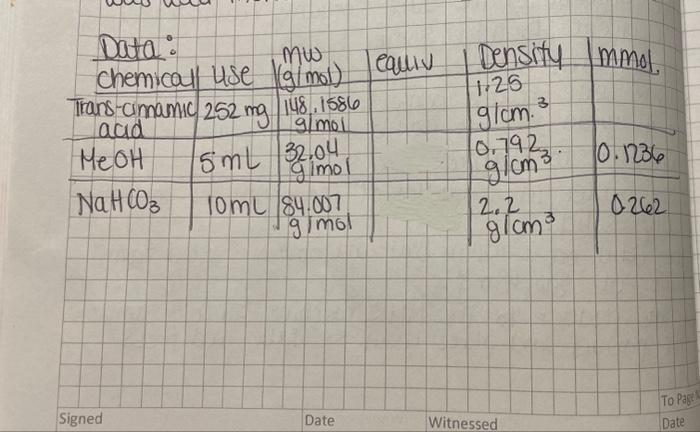 Data:
chemical use MW (g/mol) equiv Density mmol
Trans-cinnamic acid 252 mg 148.1586 g/mol 1.25 g/cm.³
MeOH 5mL 32.04 g/mol 0.792 g/cm³. 0.1236
NaHCO3 10mL 84.007 g/mol 2.2 g/cm³ 0.262
To Page
Signed Date Witnessed Date